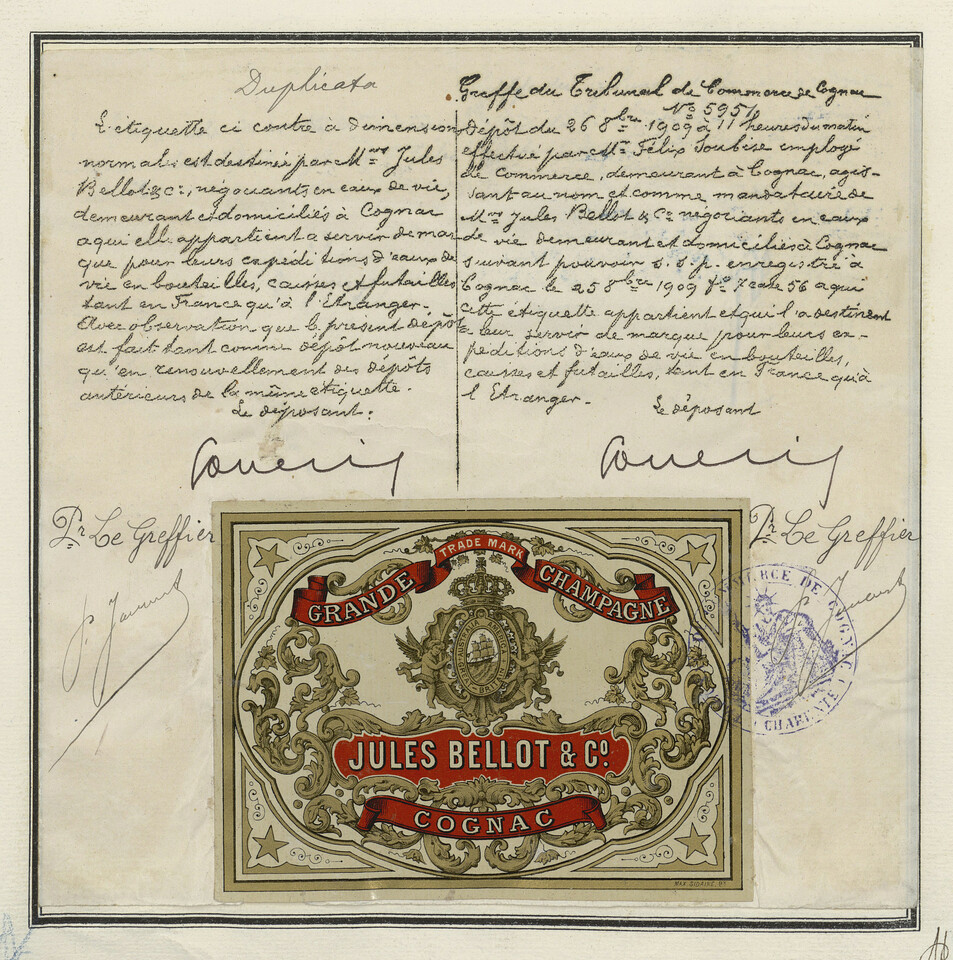 Duplicata
L'etiquette ci contre à dimension
normale est destinée par M.rs Jules
Bellot & Cie, négociants en eaux de vie,
demeurant et domiciliés à Cognac
a qui elle appartient a servir de mar-
que pour leurs expeditions d'eaux de
vie en bouteilles, caisses et futailles
tant en France qu'à l'Etranger.
Avec observation que le present dépôt
est fait tant comme dépôt nouveau
qu'en renouvellement des dépôts
antérieurs de la même etiquette.
Le déposant:
Pr Le Greffier
Greffe du Tribunal de Commerce de Cognac
No 5951
Dépôt du 26 8bre 1909 à 11 heures du matin
effectué par Mr Félix Soubise employé
de Commerce, demeurant à Cognac, agis-
sant au nom et comme mandataire de
Mrs Jules Bellot & Co negociants en eaux
de vie demeurant et domiciliés à Cognac
suivant pouvoir s.s.p. enregistré à
Cognac le 25 8bre 1909 fo 7 case 56 a qui
cette étiquette appartient et qui l'a destinent
a leur servir de marque pour leurs ex-
peditions d'eaux de vie en bouteilles,
caisses et futailles, tant en France qu'à
l'Etranger.
Le déposant
Pr Le Greffier
TRADE MARK
GRANDE CHAMPAGNE
JULES BELLOT & Co.
COGNAC
COMMERCE DE COGNAC
CHARENTE